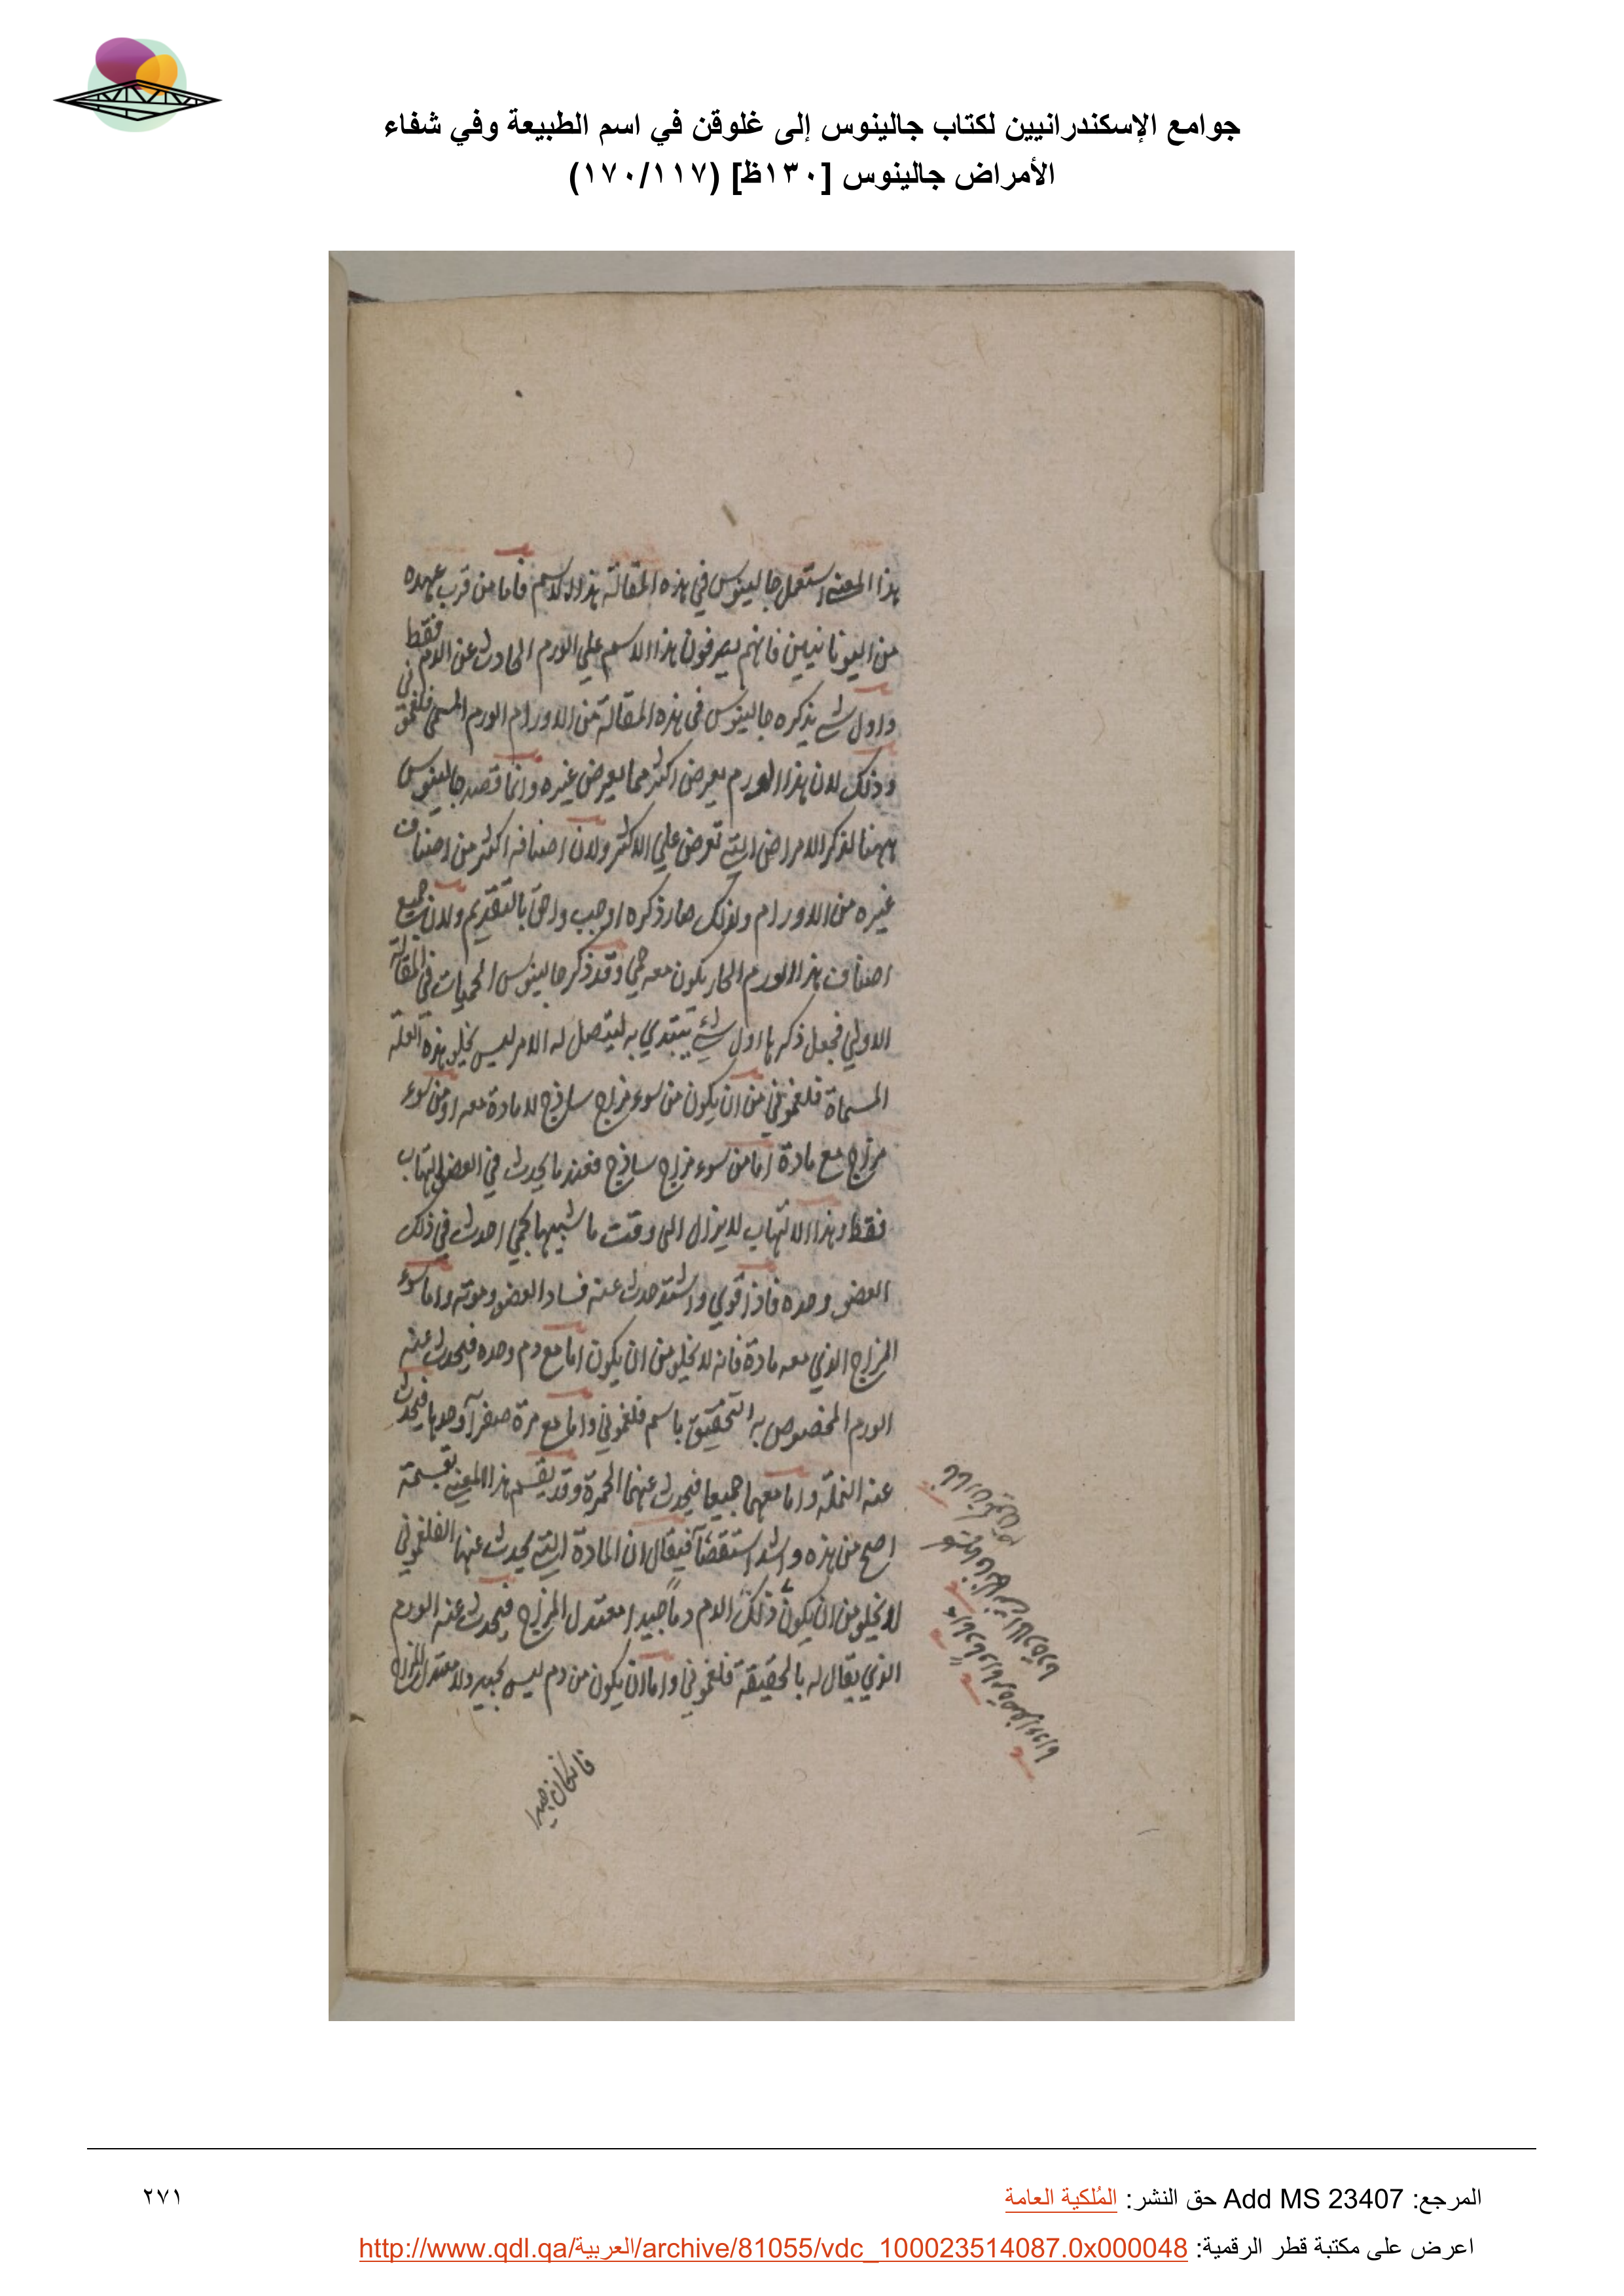 جوامع الإسكندرانيين لكتاب جالينوس إلى غلوقن في اسم الطبيعة وفي شفاء
الأمراض جالينوس [١٣٠ظ] (١٧٠/١١٧)
هذا المعنى استعمل جالينوس في هذه المقالة هذا الاسم فاما من قرب عهده
من اليونانيين فانهم يصرفون هذا الاسم علي الورم الحادث عن الدم فقط
واول شي يذكره جالينوس في هذه المقالة من الاورام الورم المسمي فلغموني
وذلك لان هذا الورم يعرض اكثر مما يعرض غيره وانما قصد جالينوس
ههنا لذكر الامراض التي تعرض علي الاكثر ولان اصنافه اكثر من اصناف
غيره من الاورام ولذلك صار ذكره اوجب واحق بالتقديم ولان جميع
اصناف هذا الورم الحار يكون معه حمي وقد ذكر جالينوس الحميات في المقالة
الاولي فجعل ذكرها اول شي يبتدي به ليتصل له الامر ليس يخلو هذه العلة
المسماة فلغموني من ان يكون من سوء مزاج ساذج لا مادة معه او من سوء
مزاج مع مادة اما من سوء مزاج ساذج فعندما يحدث في العضو التهاب
فقط وهذا الالتهاب لا يزال الى وقت ما شبيها بحمي احدث في ذلك
العضو وحده فاذا قوي واشتد حدث عنه فساد العضو وموته واما سوء
المزاج الذي معه مادة فانه لا يخلو من ان يكون اما مع دم وحده فيحدث عنه
الورم المخصوص به التحقيق باسم فلغموني واما مع مرة صفرآ وحدها فيحدث
عنه النملة واما معهما جميعا فيحدث عنهما الحمرة وقد يقسم هذا المعنى بقسمة
اصح من هذه واشد استقصآ فيقال ان المادة التي يحدث عنها الفلغموني
لا يخلو من ان يكون ذلك الدم دماً جيدا معتدل المزاج فيحدث عنه الورم
الذي يقال له بالحقيقة فلغموني واما ان يكون من دم ليس بجيد ولا معتدل المزاج
فان كان جيدا
المرجع: Add MS 23407 حق النشر: المُلكية العامة
٢٧١
اعرض على مكتبة قطر الرقمية: http://www.qdl.qa/العربية/archive/81055/vdc_100023514087.0x000048